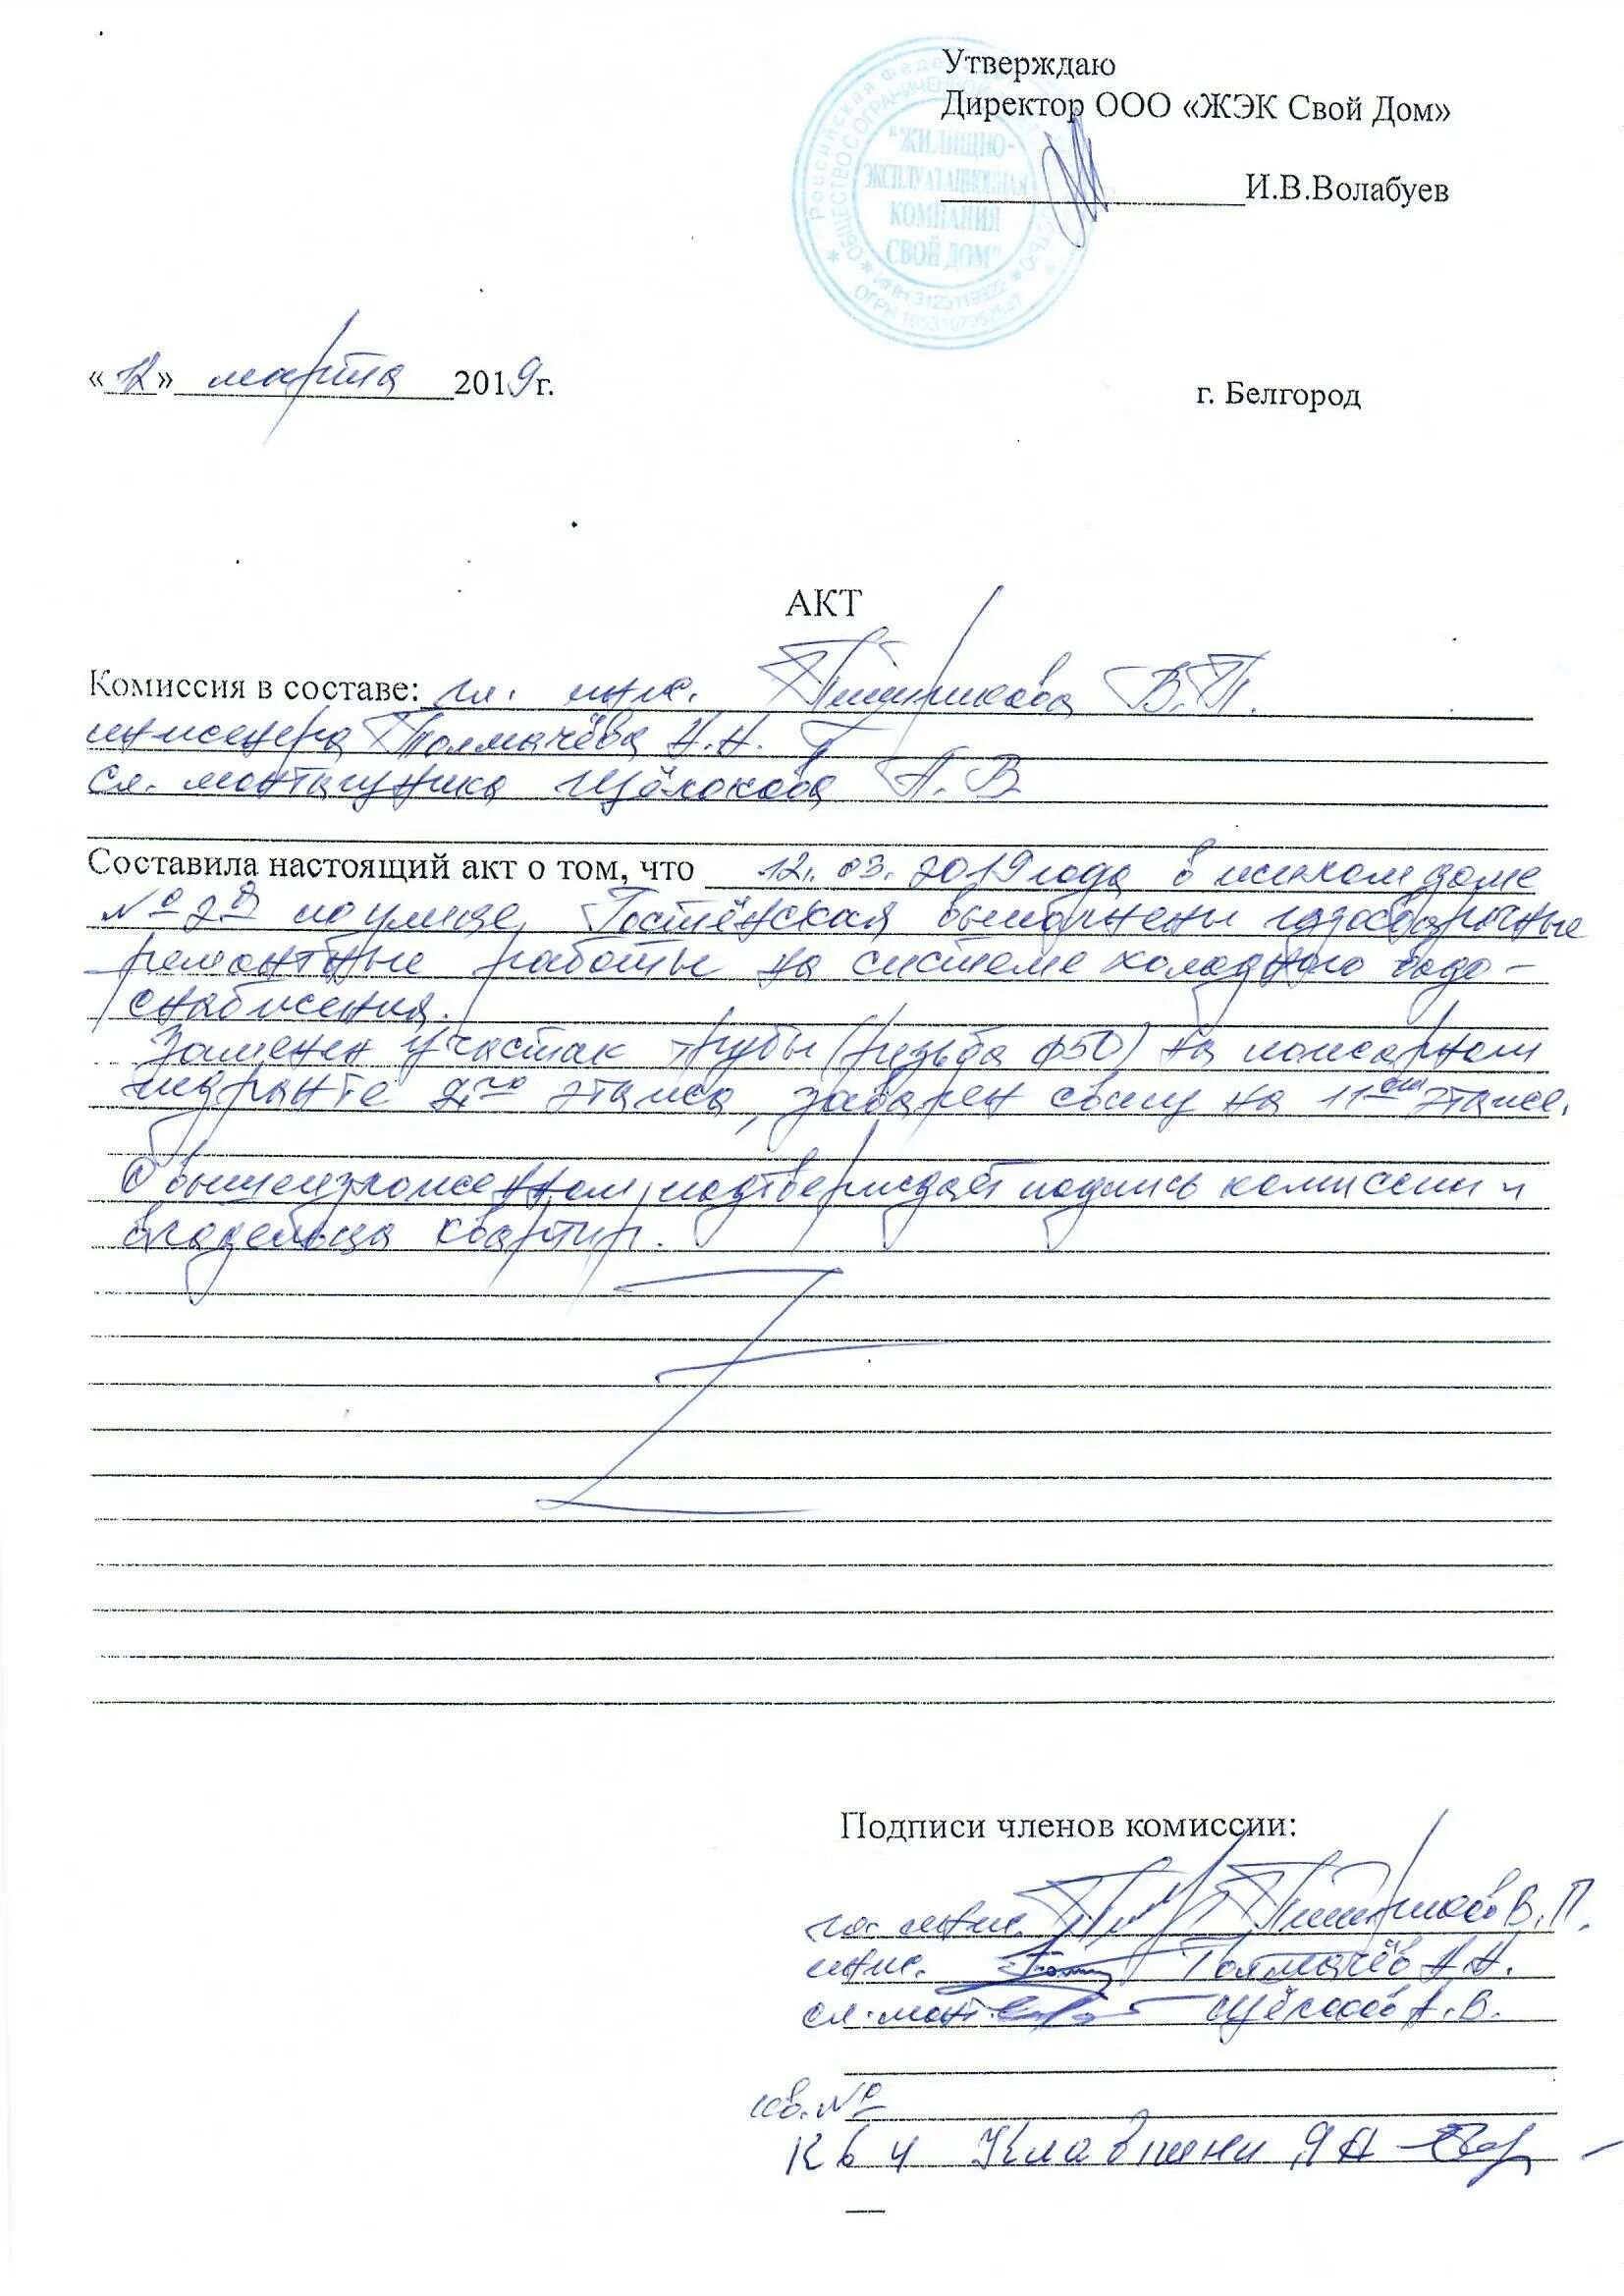 Утверждаю
Директор ООО «ЖЭК Свой Дом»
И.В.Волабуев
Российская Феде
ОБЩЕСТВО С ОГРАНИЧЕННОЙ
"ЖИЛИЩНО-
ЭКСПЛУАТАЦИОННАЯ
КОМПАНИЯ
СВОЙ ДОМ"
ИНН 3123119822
ОГРН
«12» марта 2019г.
г. Белгород
АКТ
Комиссия в составе: гл. инж. В.П.
инженера Толмачёва Н.Н.
сл. монтажника Щёлокова А.В
Составила настоящий акт о том, что 12. 03. 2019 года в жилом доме
по улице Гостёнская выполнены газосварочные
ремонтные работы на системе холодного водо-
снабжения.
Заменен участок трубы (резьба ф50) на пожарном
гидранте 2го этажа, заварен свищ на 11ом этаже.
О вышеизложенном, подтверждает подпись комиссии и
владельца квартир.
Подписи членов комиссии:
гл. инж. В.П.
инж. Толмачёв Н.Н.
сл. монт. Щёлоков А.В.
кв. №
Кв 4